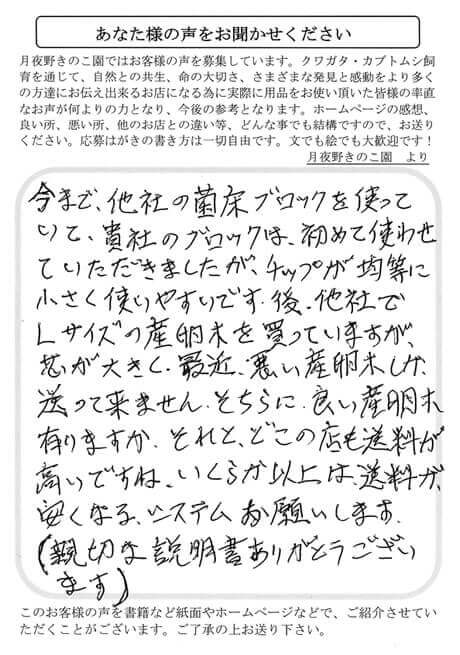 あなた様の声をお聞かせください
月夜野きのこ園ではお客様の声を募集しています。クワガタ・カブトムシ飼
育を通じて、自然との共生、命の大切さ、さまざまな発見と感動をより多く
の方達にお伝え出来るお店になる為に実際に用品をお使い頂いた皆様の率直
なお声が何よりの力となり、今後の参考となります。ホームページの感想、
良い所、悪い所、他のお店との違い等、どんな事でも結構ですので、お送り
ください。応募はがきの書き方は一切自由です。文でも絵でも大歓迎です！
月夜野きのこ園　より
今まで、他社の菌床ブロックを使って
いて、貴社のブロックは、初めて使わせ
ていただきましたが、チップが均等に
小さく使いやすいです。後、他社で
Lサイズの産卵木を買っていますが、
芯が大きく、最近、悪い産卵木しか、
送って来ません。そちらに、良い産卵木
有りますか。それと、どこの店も送料が
高いですね。いくらか以上は、送料が、
安くなる、システムお願いします。
(親切な説明書ありがとうござい
ます)
このお客様の声を書籍など紙面やホームページなどで、ご紹介させてい
ただくことがございます。ご了承の上お送り下さい。